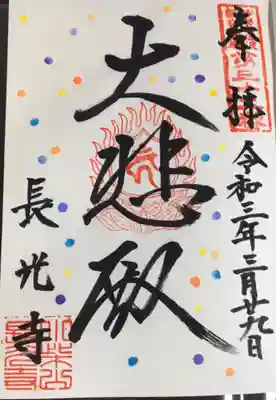 奉拝
令和三年三月廿九日
大悲殿
長光寺